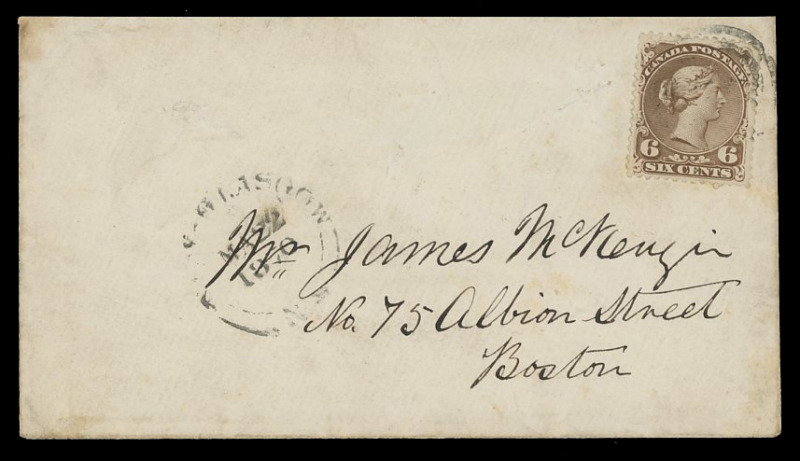 CANADA POSTAGE
6 6
SIX CENTS
GLASGOW
22
Mr James McKenzie
No. 75 Albion Street
Boston